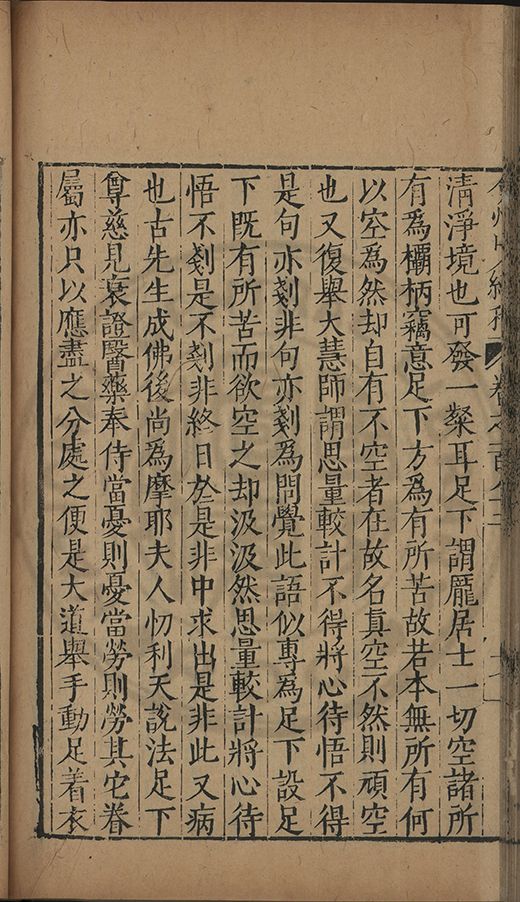 弇州山人續稿 卷之一百八十三
清淨境也可發一粲耳足下謂龐居士一切空諸所
有爲欛柄竊意足下方爲有所苦故若本無所有何
以空爲然却自有不空者在故名真空不然則頑空
也又復舉大慧師謂思量較計不得將心待悟不得
是句亦剗非句亦剗爲問覺此語似專爲足下設足
下既有所苦而欲空之却汲汲然思量較計將心待
悟不剗是不剗非終日於是非中求出是非此又病
也古先生成佛後尚爲摩耶夫人忉利天說法足下
尊慈見衰證醫藥奉侍當憂則憂當勞則勞其它眷
屬亦只以應盡之分處之便是大道舉手動足着衣